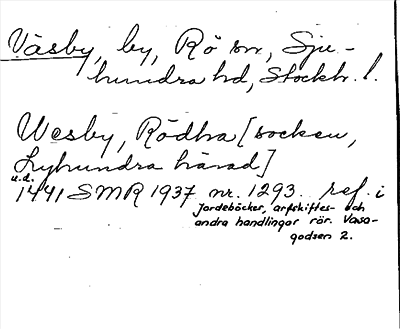 Väsby, by, Rö sn, Sju-
hundra hd, Stockh. l.
Wesby, Rödha [socken,
Lyhundra härad]
u.d.
1441 SMR 1937 nr. 1293. ref. i
Jordeböcker, arfskiftes- och
andra handlingar rör. Vasa-
godsen 2.